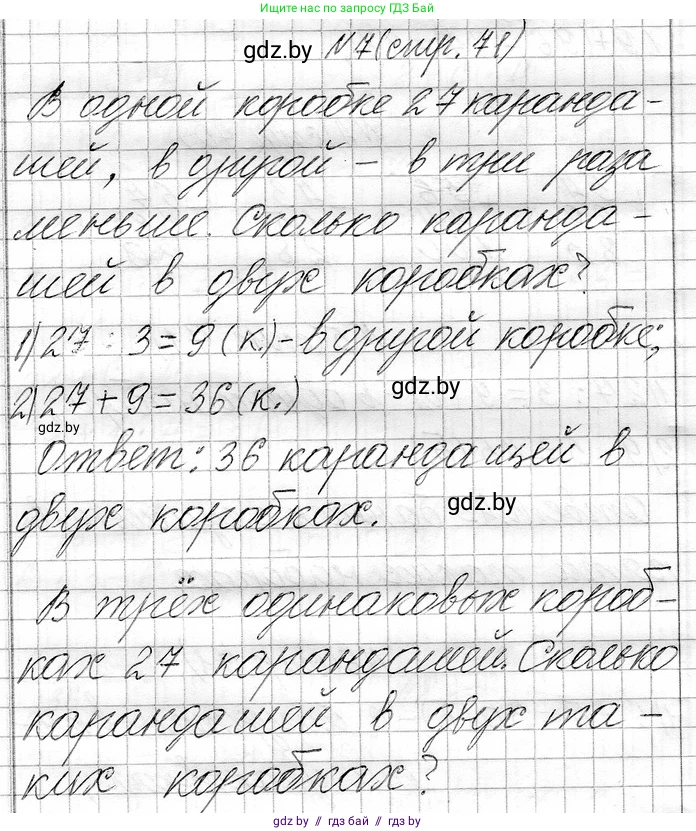 Ищите нас по запросу ГДЗ Бай
gdz.by №7(стр. 71)
В одной коробке 27 каранда-
шей, в другой – в три раза
меньше. Сколько каранда-
шей в двух коробках?
1) 27 : 3 = 9 (к.) – в другой коробке;
2) 27 + 9 = 36 (к.) gdz.by
gdz.by
Ответ: 36 карандашей в
двух коробках. gdz.by
В трёх одинаковых короб-
ках 27 карандашей. Сколько
карандашей в двух та-
ких коробках?
gdz.by // гдз бай // gdz.by